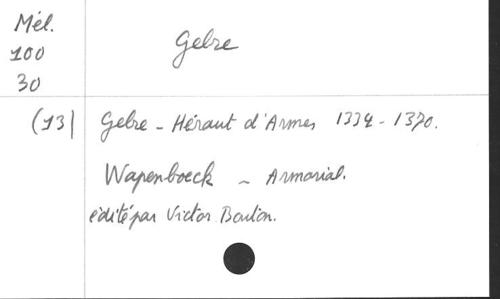 Mél.
100
30
Gelre
(13) Gelre - Héraut d'Armes 1334 - 1370.
Wapenboeck - Armorial.
édité par Victor Bouton.